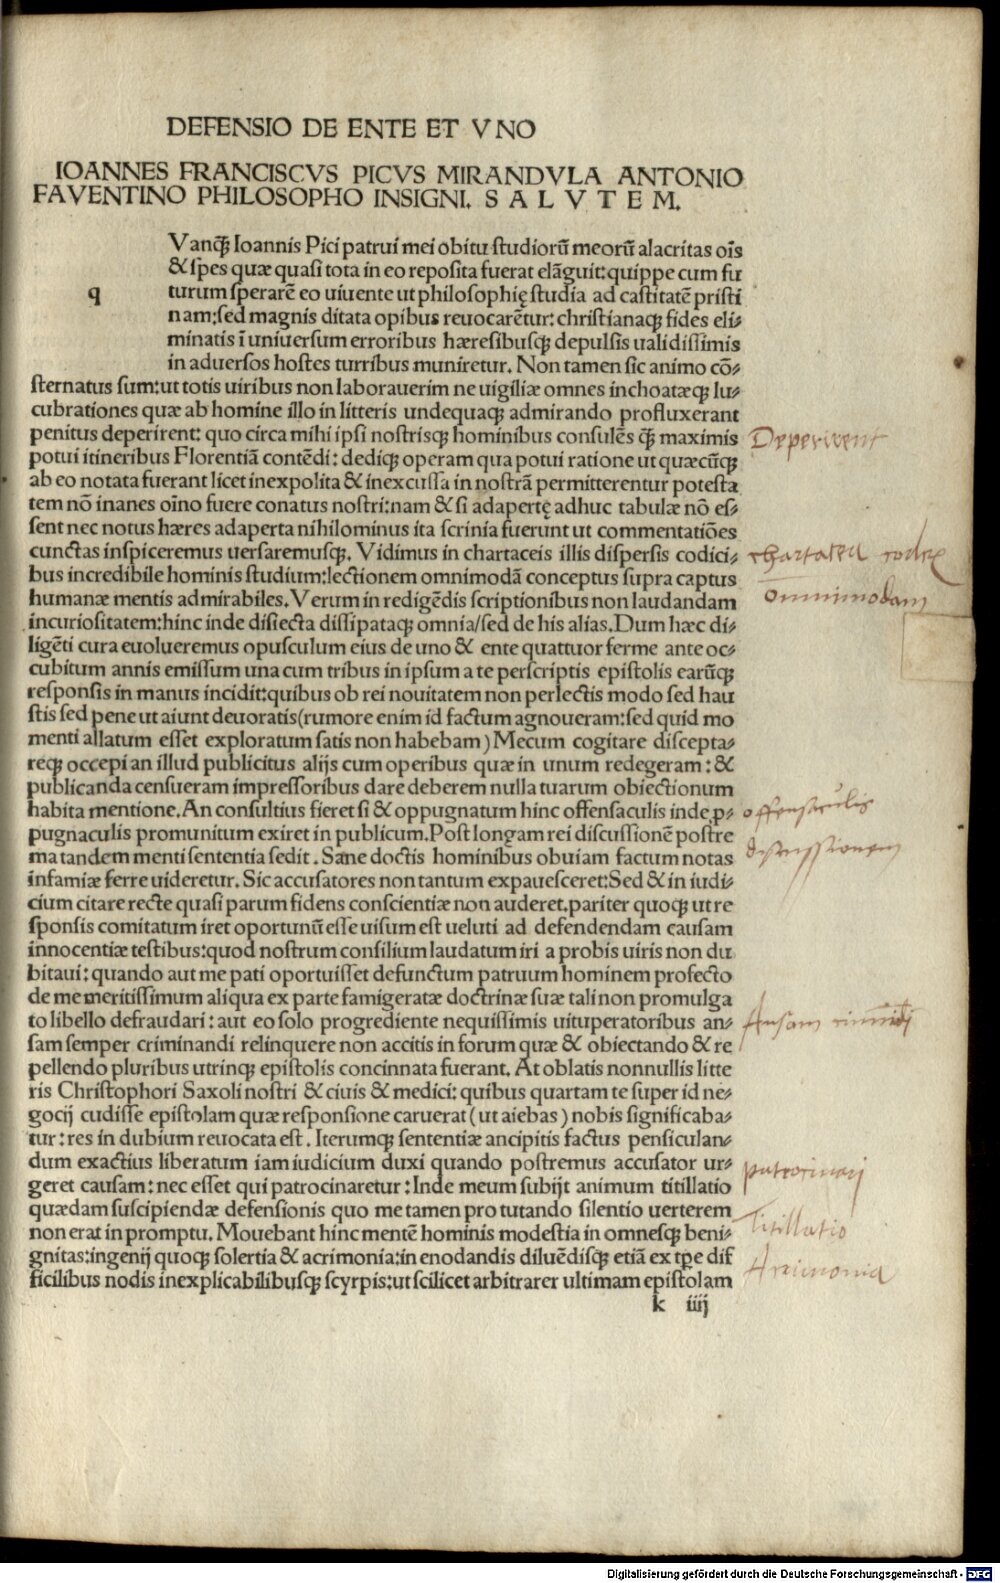 DEFENSIO DE ENTE ET VNO
IOANNES FRANCISCVS PICVS MIRANDVLA ANTONIO
FAVENTINO PHILOSOPHO INSIGNI. S A L V T E M.
q
Vanq̃ Ioannis Pici patrui mei obitu studiorũ meorũ alacritas oĩs
& spes quæ quasi tota in eo reposita fuerat elãguit: quippe cum fu
turum sperarẽ eo uiuente ut philosophię studia ad castitatẽ pristi
nam: sed magnis ditata opibus reuocarẽtur: christianaq; fides eli-
minatis ĩ uniuersum erroribus hæresibusq; depulsis ualidissimis
in aduersos hostes turribus muniretur. Non tamen sic animo cõ-
sternatus sum: ut totis uiribus non laborauerim ne uigiliæ omnes inchoatæq; lu-
cubrationes quæ ab homine illo in litteris undequaq; admirando profluxerant
penitus deperirent: quo circa mihi ipsi nostrisq; hominibus consulẽs q̃ maximis
potui itineribus Florentiã contẽdi: dediq; operam qua potui ratione ut quæcũq;
ab eo notata fuerant licet inexpolita & inexcussa in nostrã permitterentur potesta
tem nõ inanes oĩno fuere conatus nostri: nam & si adapertę adhuc tabulæ nõ es-
sent nec notus hæres adaperta nihilominus ita scrinia fuerunt ut commentatiões
cunctas inspiceremus uersaremusq;. Vidimus in chartaceis illis dispersis codici-
bus incredibile hominis studium: lectionem omnimodã conceptus supra captus
humanæ mentis admirabiles. Verum in redigẽdis scriptionibus non laudandam
incuriositatem: hinc inde disiecta dissipataq; omnia/sed de his alias. Dum hæc di-
ligẽti cura euolueremus opusculum eius de uno & ente quattuor ferme ante oc-
cubitum annis emissum una cum tribus in ipsum a te perscriptis epistolis earũq;
responsis in manus incidit: quibus ob rei nouitatem non perlectis modo sed hau
stis sed pene ut aiunt deuoratis (rumore enim id factum agnoueram: sed quid mo
menti allatum esset exploratum satis non habebam) Mecum cogitare discepta-
req; occepi an illud publicitus alijs cum operibus quæ in unum redegeram: &
publicanda censueram impressoribus dare deberem nulla tuarum obiectionum
habita mentione. An consultius fieret si & oppugnatum hinc offensaculis inde ꝓ-
pugnaculis promunitum exiret in publicum. Post longam rei discussionẽ postre
ma tandem menti sententia sedit. Sane doctis hominibus obuiam factum notas
infamiæ ferre uideretur. Sic accusatores non tantum expauesceret: Sed & in iudi-
cium citare recte quasi parum fidens conscientiæ non auderet. pariter quoq; ut re
sponsis comitatum iret oportunũ esse uisum est ueluti ad defendendam causam
innocentiæ testibus: quod nostrum consilium laudatum iri a probis uiris non du
bitaui: quando aut me pati oportuisset defunctum patruum hominem profecto
de me meritissimum aliqua ex parte famigeratæ doctrinæ suæ tali non promulga
to libello defraudari: aut eo solo progrediente nequissimis uituperatoribus an-
sam semper criminandi relinquere non accitis in forum quæ & obiectando & re
pellendo pluribus utrinq; epistolis concinnata fuerant. At oblatis nonnullis litte
ris Christophori Saxoli nostri & ciuis & medici: quibus quartam te super id ne-
gocij cudisse epistolam quæ responsione caruerat (ut aiebas) nobis significaba-
tur: res in dubium reuocata est. Iterumq; sententiæ ancipitis factus pensiculan-
dum exactius liberatum iam iudicium duxi quando postremus accusator ur-
geret causam: nec esset qui patrocinaretur: Inde meum subijt animum titillatio
quædam suscipiendæ defensionis quo me tamen pro tutando silentio uerterem
non erat in promptu. Mouebant hinc mentẽ hominis modestia in omnesq; beni-
gnitas: ingenij quoq; solertia & acrimonia: in enodandis diluẽdisq; etiã ex tp̃e dif
ficilibus nodis inexplicabilibusq; scyrpis: ut scilicet arbitrarer ultimam epistolam
k iiij
Deperirent
chartacei codex
omnimodam
offensaculis
discussionem
Ansam
patrocinari
Titillatio
Acrimonia